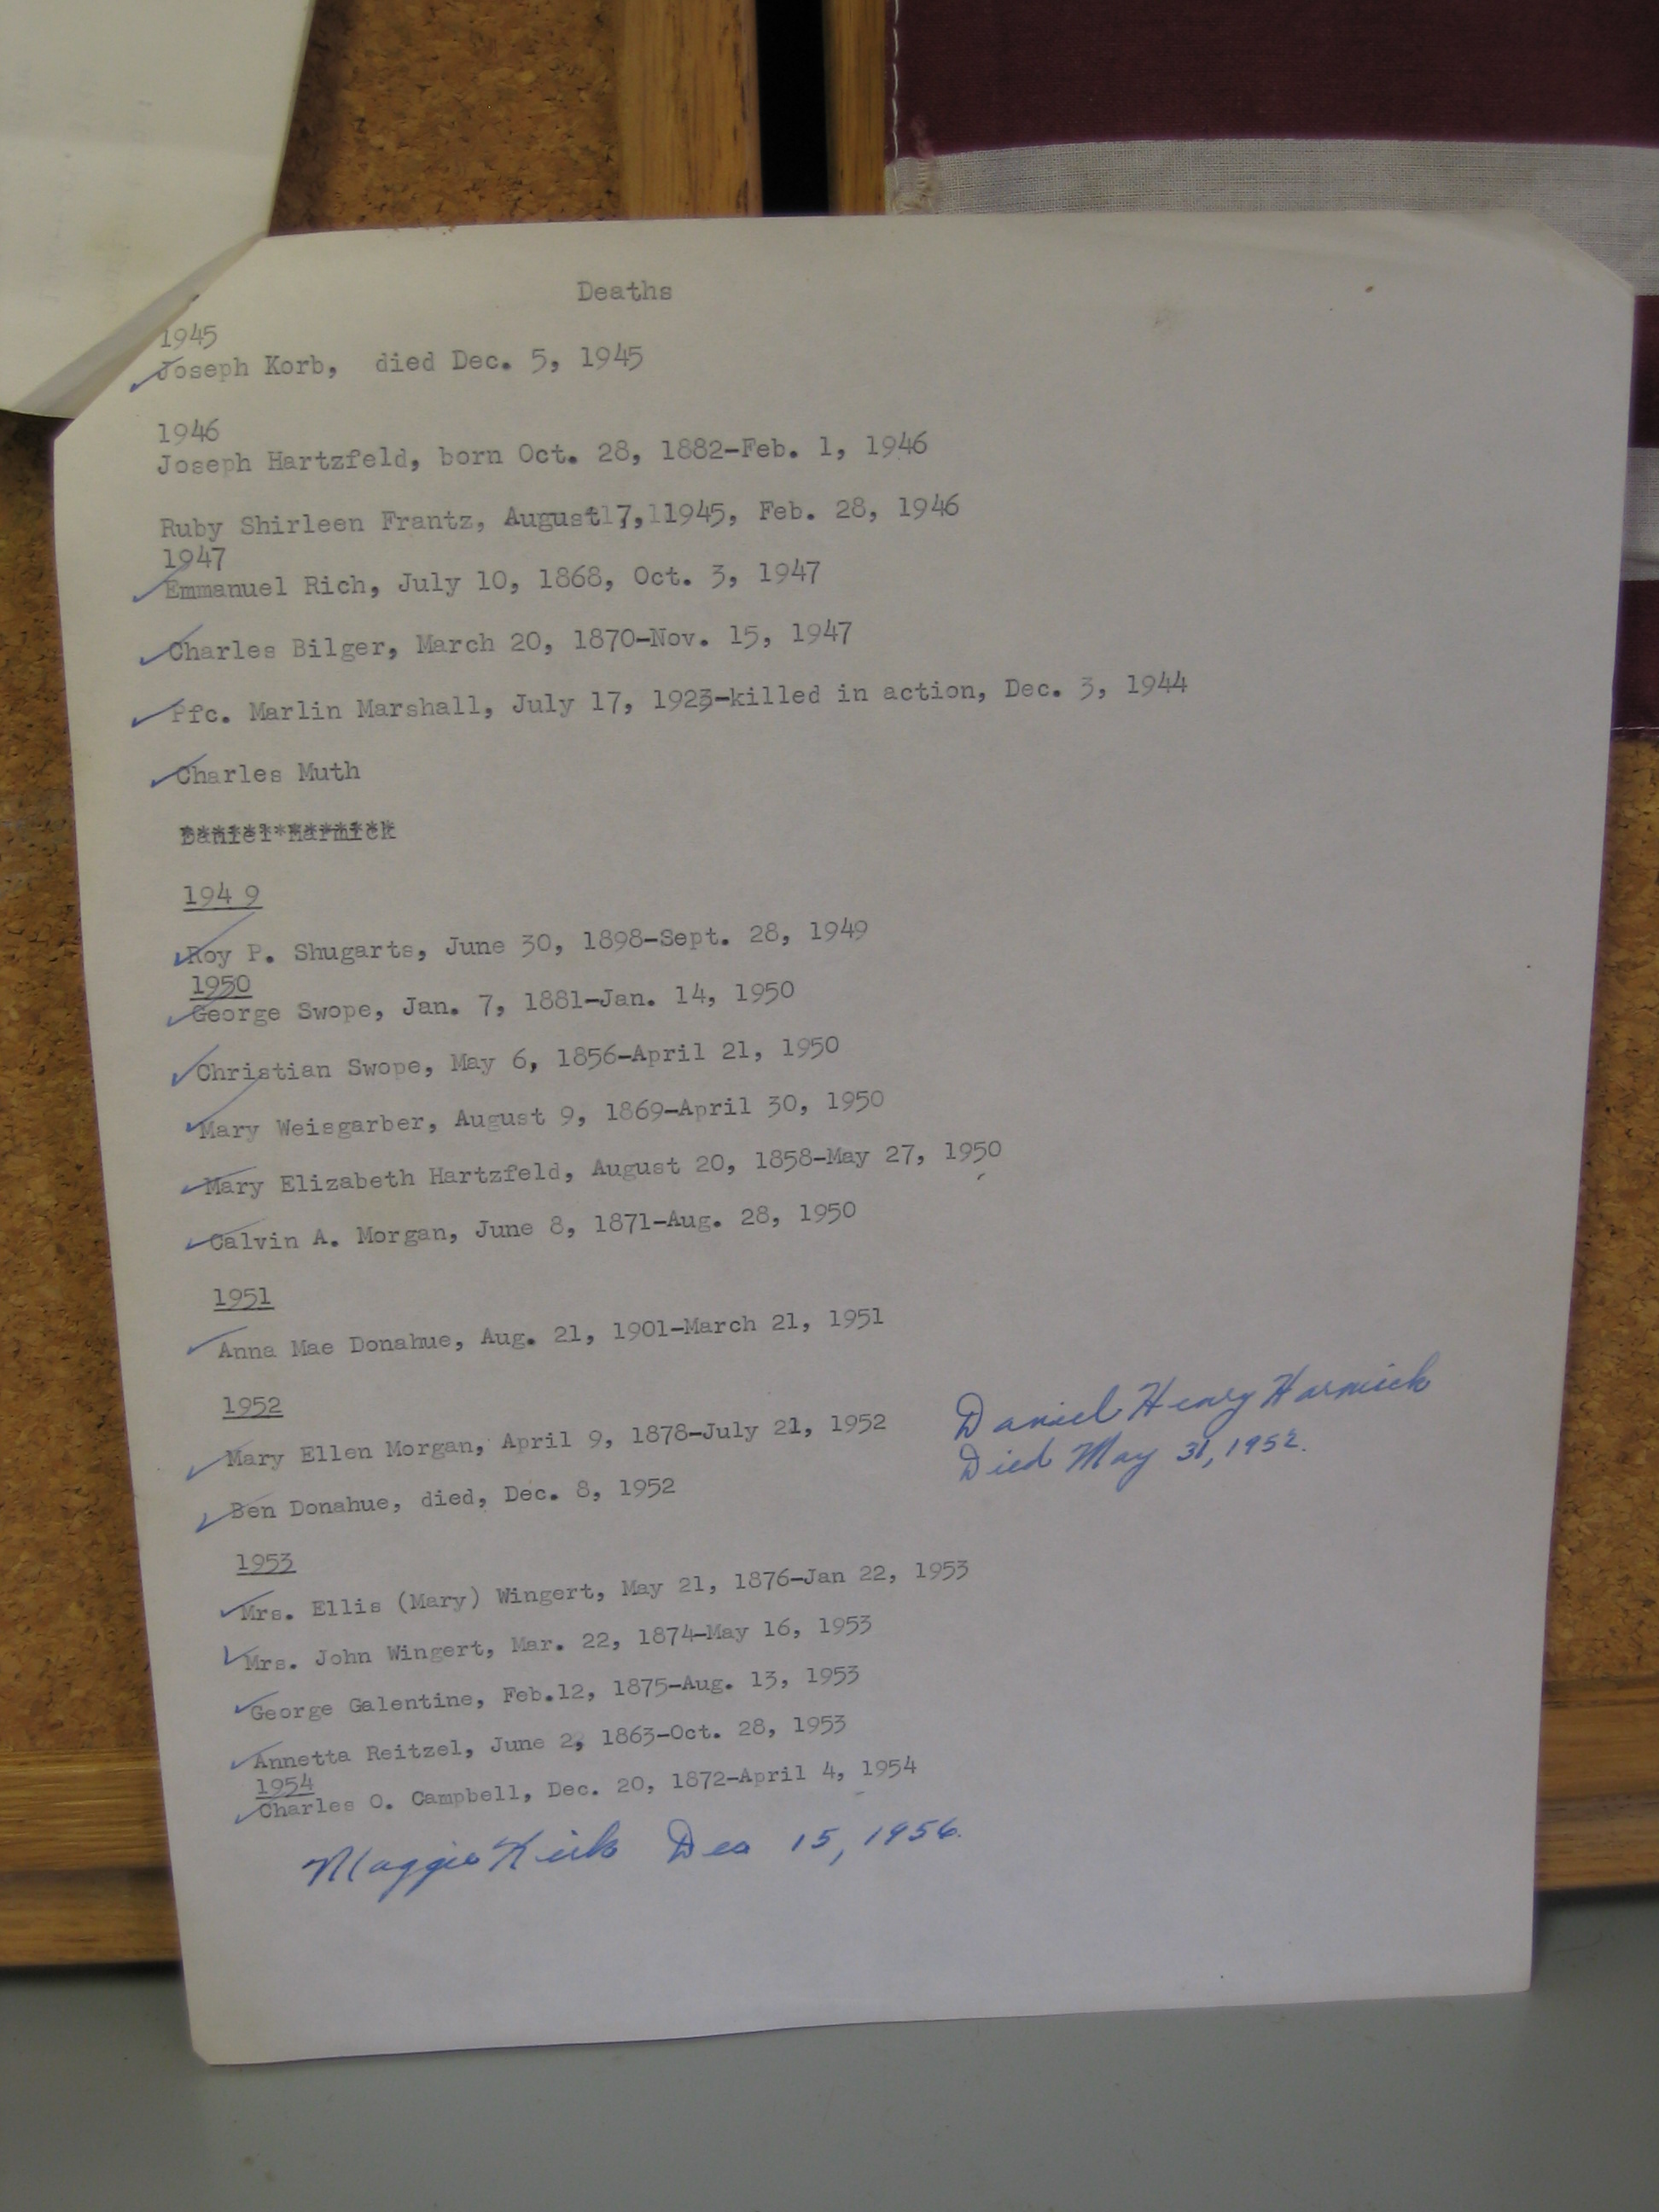 Deaths
1945
Joseph Korb, died Dec. 5, 1945
1946
Joseph Hartzfeld, born Oct. 28, 1882-Feb. 1, 1946
Ruby Shirleen Frantz, August17,11945, Feb. 28, 1946
1947
Emmanuel Rich, July 10, 1868, Oct. 3, 1947
Charles Bilger, March 20, 1870-Nov. 15, 1947
Pfc. Marlin Marshall, July 17, 1923-killed in action, Dec. 3, 1944
Charles Muth
194 9
Roy P. Shugarts, June 30, 1898-Sept. 28, 1949
1950
George Swope, Jan. 7, 1881-Jan. 14, 1950
Christian Swope, May 6, 1856-April 21, 1950
Mary Weisgarber, August 9, 1869-April 30, 1950
Mary Elizabeth Hartzfeld, August 20, 1858-May 27, 1950
Calvin A. Morgan, June 8, 1871-Aug. 28, 1950
1951
Anna Mae Donahue, Aug. 21, 1901-March 21, 1951
1952
Mary Ellen Morgan, April 9, 1878-July 21, 1952
Daniel Henry Harmick
Died May 31, 1952.
Ben Donahue, died, Dec. 8, 1952
1953
Mrs. Ellis (Mary) Wingert, May 21, 1876-Jan 22, 1953
Mrs. John Wingert, Mar. 22, 1874-May 16, 1953
George Galentine, Feb.12, 1875-Aug. 13, 1953
Annetta Reitzel, June 2, 1863-Oct. 28, 1953
1954
Charles O. Campbell, Dec. 20, 1872-April 4, 1954
Maggie Kirk Dec 15, 1956.